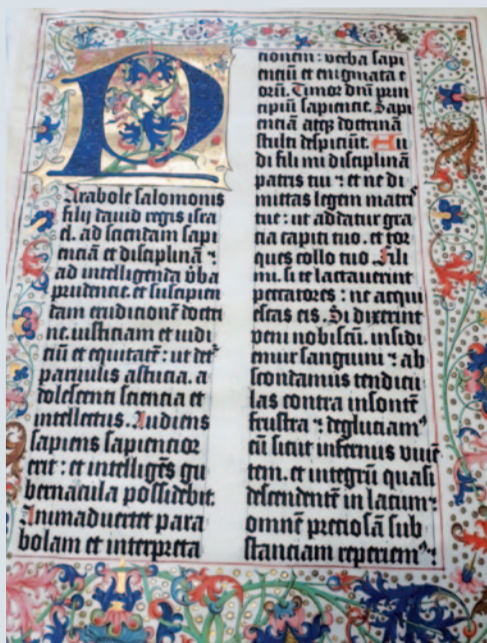 P
Arabole salomonis
filij dauid regis isra
el. ad sciendam sapi
enciā et disciplinā ⁊
ad intelligenda v̓ba
prudencie. et suscipien
dam eruditionē doctri
ne. iusticiam et iudi
ciū et equitatē : ut det᷑
paruulis astucia. a
dolescenti sciencia et
intellectus. Audiens
sapiens sapiencior
erit : et intelligēs gu
bernacula possidebit.
Animaduertet para
bolam et interpreta
tionem : verba sapi
enciū et enigmata e
orū. Timor dn̄i prin
cipiū sapiencie. Sapi
enciā atqꝫ doctrinā
stulti despiciūt. Au
di fili mi disciplinā
patris tui ⁊ et ne di
mittas legem matr̓
tue : ut addatur gra
cia capiti tuo. et tor
ques collo tuo. Fili
mi. si te lactauerint
peccatores : ne acqui
escas eis. Si dixerint
veni nobiscū. insidi
emur sanguini ⁊ ab
scondamus tendicu
las contra insontē
frustra ⁊ degluciam᷒
eū sicut infernus viuē
tem. et integrū quasi
descendentē in lacum ⁊
omnē preciosā sub
stanciam reperiem᷒ ⁊